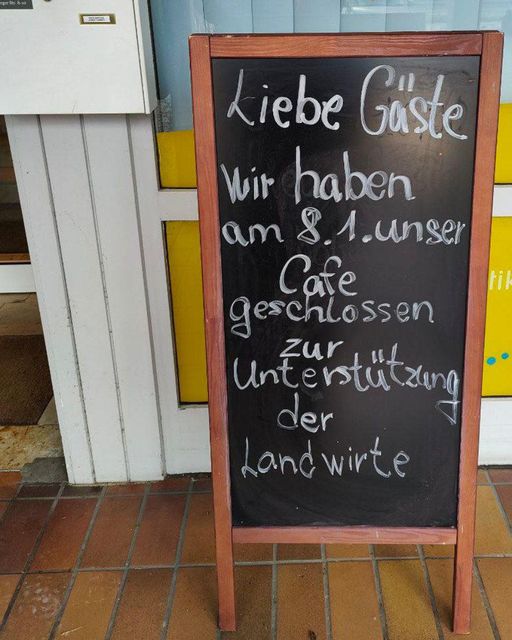 Liebe Gäste
wir haben
am 8.1. unser
Cafe
geschlossen
zur
Unterstützung
der
Landwirte